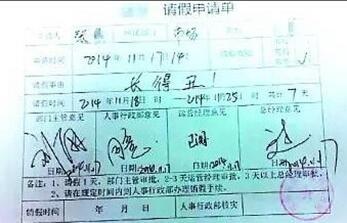 请假申请单
申请人 部门
申请时间 2014年11月17日
请假事由 长得丑！
请假时间 2014年11月18日 — 2014年11月25日 共计 7 天
部门主管意见 人事行政部意见 运营经理意见 总经理意见
日期 2014.11.17 日期 2014.11.17 日期 日期
备注：1、请假1天，部门主管审批，2-3天运营经理审批，3天以上总经理审批。
2、请在规定时间内到人事行政部办理销假手续。
销假时间 年 月 日 人事行政部核实